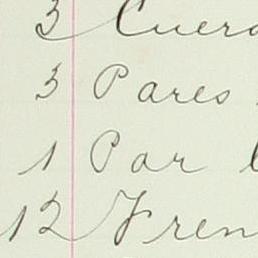 3 Cuero
3 Pares
1 Par
12 Fren